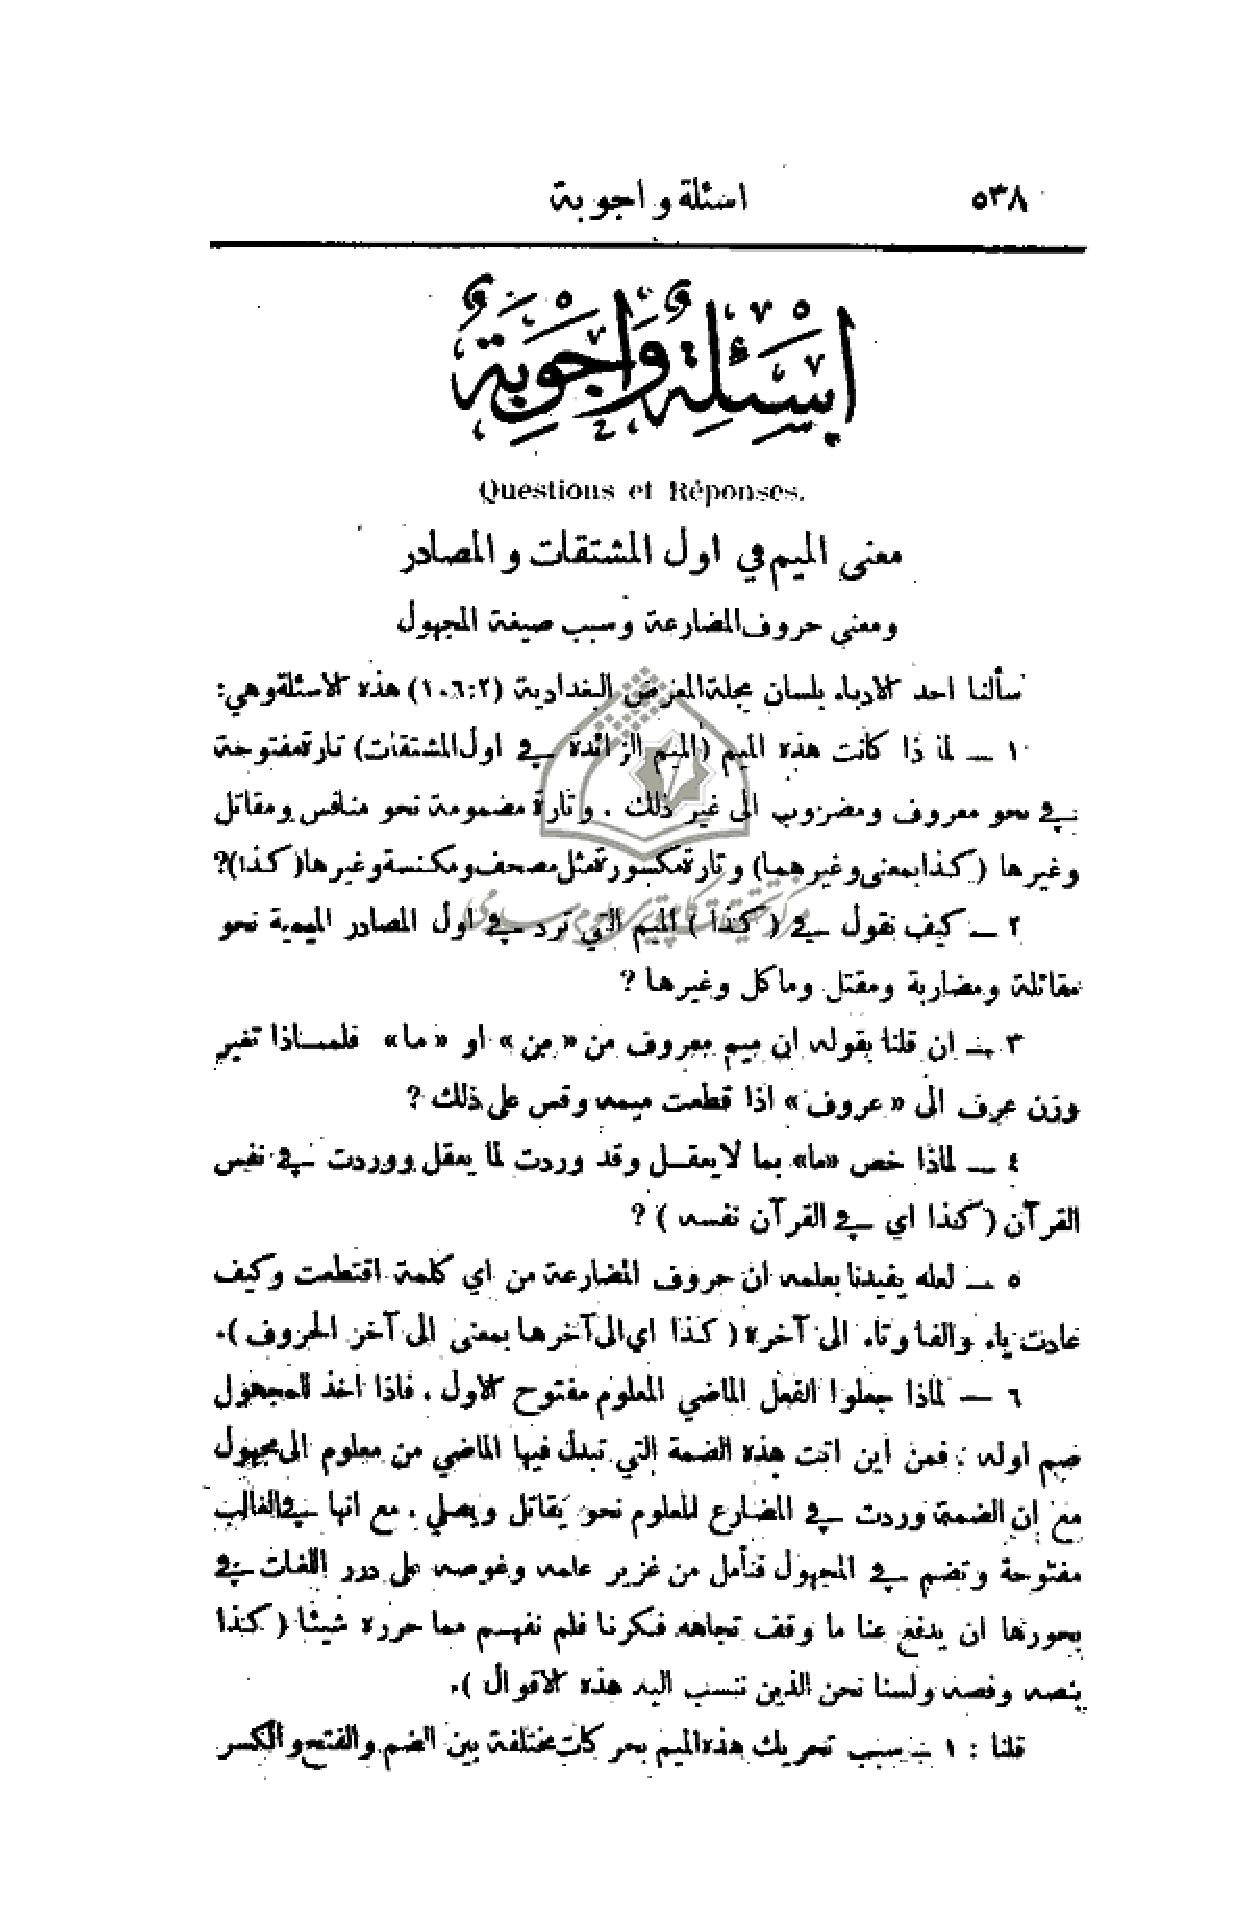 ٥٣٨
اسئلة واجوبة
اَسْئِلَةٌ وَاَجْوِبَةٌ
Questions et Réponses.
معنى الميم في اول المشتقات والمصادر
ومعنى حروف المضارعة وسبب صيغة المجهول
سألنا احد الادباء بلسان مجلة المعرض البغدادية (١٠٦:٢) هذه الاسئلة وهي:
١ — لما ذا كانت هذه الميم (الميم الزائدة في اول المشتقات) تارة مفتوحة
في نحو معروف ومضروب الى غير ذلك . وتارة مضمومة نحو منافس ومقاتل
وغيرها (كذا بمعنى وغيرهما) وتارة مكسورة مثل مصحف ومكنسة وغيرها (كذا)؟
٢ — كيف نقول في (كذا) الميم التي ترد في اول المصادر الميمية نحو
مقاتلة ومضاربة ومقتل وماكل وغيرها ؟
٣ — ان قلنا بقوله ان ميم معروف من « من » او « ما » فلمــاذا تغير
وزن عرف الى « عروف » اذا قطعت ميمه وقس على ذلك ؟
٤ — لماذا خص «ما» بما لا يعقــل وقد وردت لما يعقل ووردت في نفس
القرآن (كذا اي في القرآن نفسه ) ؟
٥ — لعله يفيدنا بعلمه ان حروف المضارعة من اي كلمة اقتطعت وكيف
عادت ياء والفا وتاء الى آخره (كذا اي الى آخرها بمعنى الى آخر الحروف ).
٦ — لماذا جعلوا الفعل الماضي المعلوم مفتوح الاول . فاذا اخذ للمجهول
ضم اوله : فمن اين اتت هذه الضمة التي تبدل فيها الماضي من معلوم الى مجهول
مع ان الضمة وردت في المضارع للمعلوم نحو يُقاتل ويصلي . مع انها في الغالب
مفتوحة وتضم في المجهول فنأمل من غزير علمه وغوصه على درر اللغات في
بحورها ان يدفع عنا ما وقف تجاهه فكرنا فلم نفهم مما حرره شيئا ( كذا
بنصه وفصه ولسنا نحن الذين تنسب اليه هذه الاقوال ).
قلنا : ١ — سبب تحريك هذه الميم بحركات مختلفة بين الضم والفتح والكسر